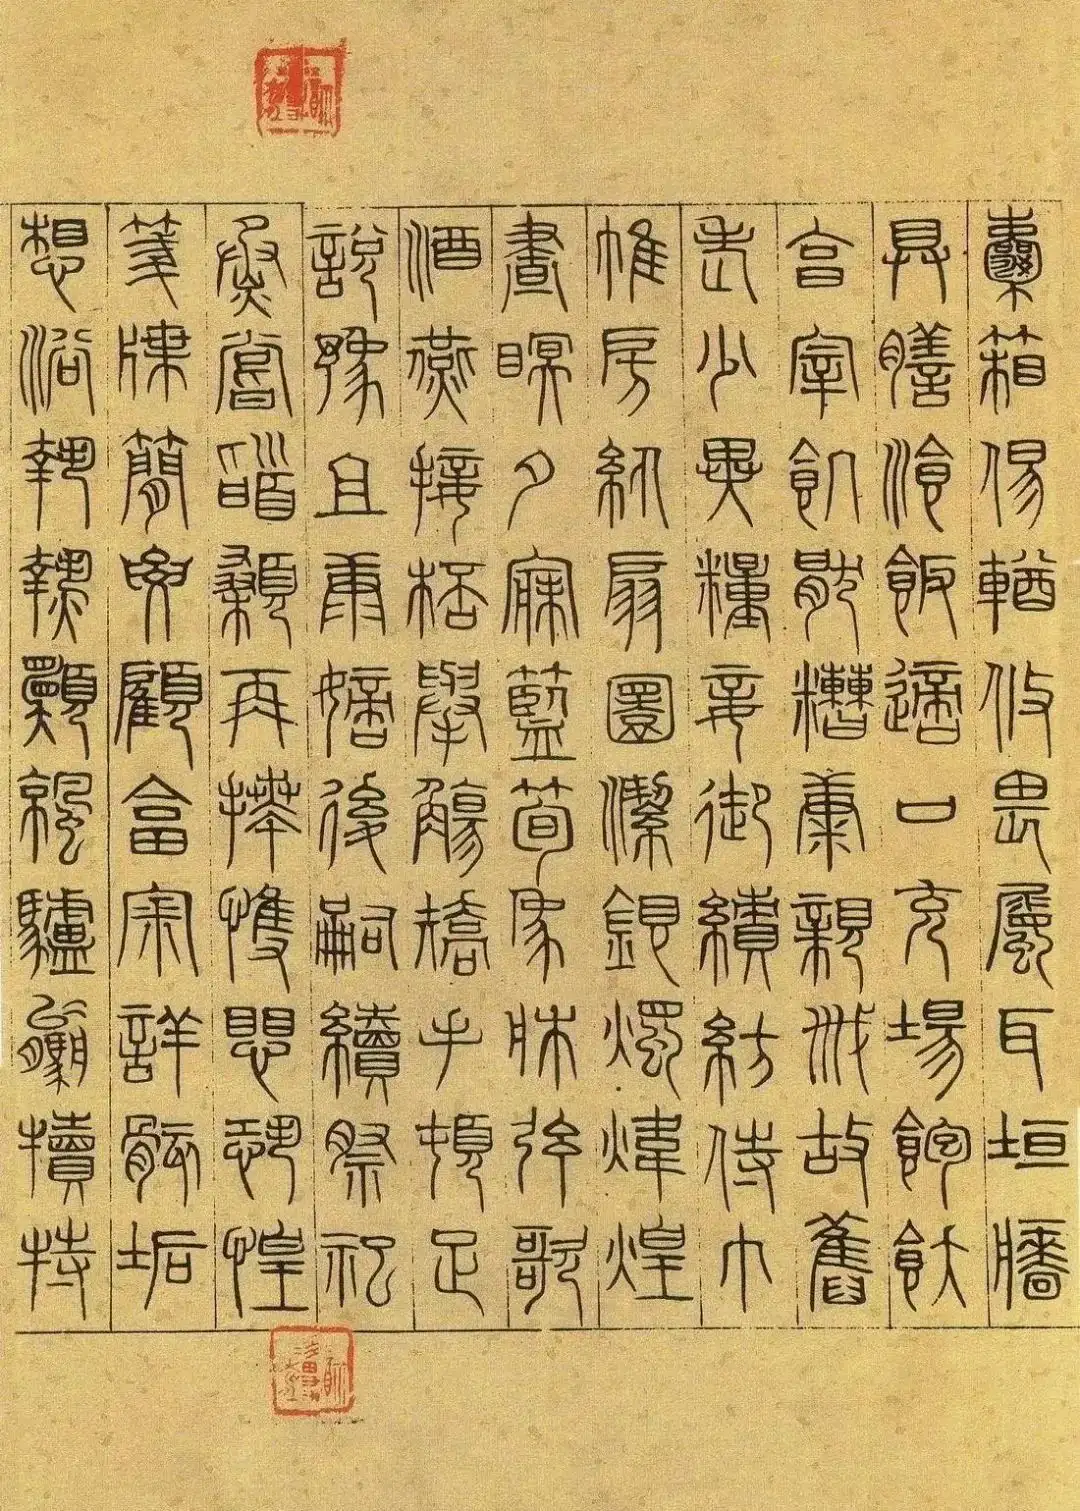 囊箱易輶攸畏屬耳垣牆
具膳飡飯適口充腸飽飫
亯宰飢猒糟糠親戚故舊
老少異糧妾御績紡侍巾
帷房紈扇圓潔銀燭煒煌
晝瞑夕寐藍筍象床弦歌
酒燕接杯舉觴矯手頓足
說豫且康嫡後嗣續祭祀
烝嘗稽顙再拜悚懼恐惶
箋牒簡要顧答審詳骸垢
想浴執熱願涼驢騾犢特